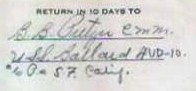 RETURN IN 10 DAYS TO
B.B. Pretzer CMM.
USS Ballard AVD-10.
% P.O. S.F. Calif.